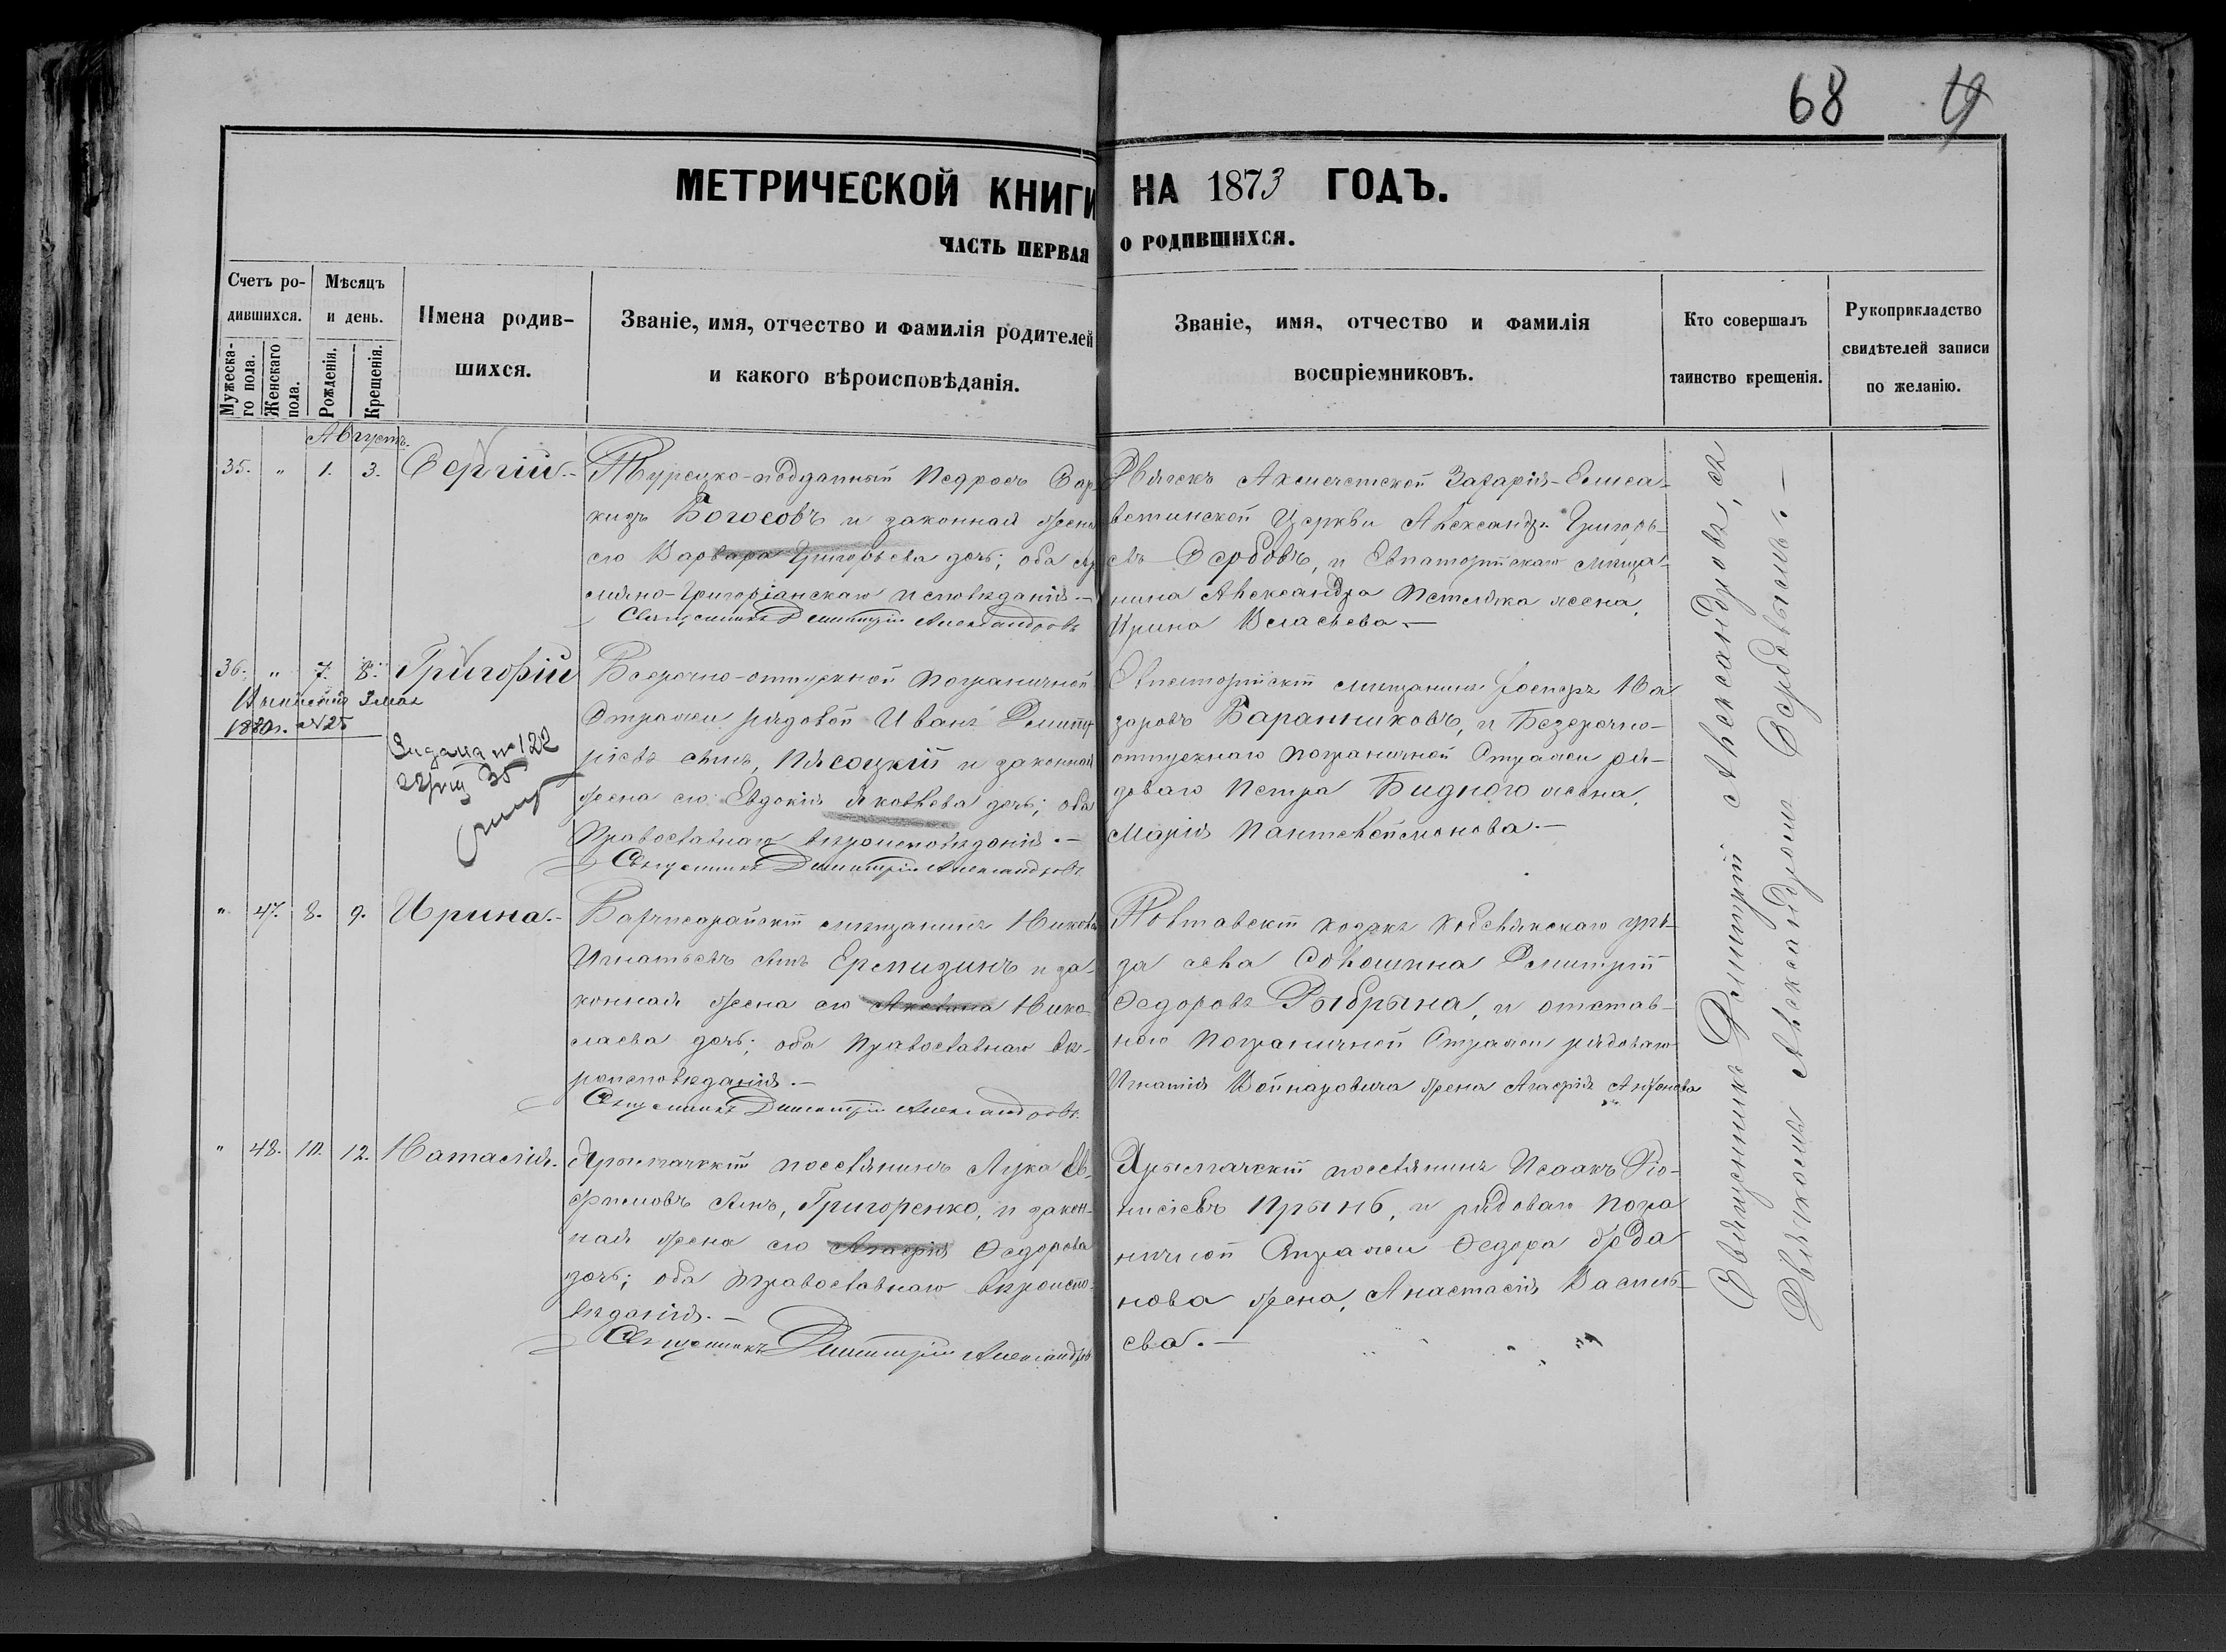 68 19
МЕТРИЧЕСКОЙ КНИГИ НА 1873 ГОДЪ.
ЧАСТЬ ПЕРВАЯ О РОДИВШИХСЯ.
Счетъ ро-
дившихся.
Мужеска-
го пола.
Женскаго
пола.
Мѣсяцъ
и день.
Рожденія.
Крещенія.
Имена родив-
шихся.
Званіе, имя, отчество и фамилія родителей
и какого вѣроисповѣданія.
Званіе, имя, отчество и фамилія
воспріемниковъ.
Кто совершалъ
таинство крещенія.
Рукоприкладство
свидѣтелей записи
по желанію.
Августъ.
35. " 1. 3. Сергій.-
Турецко-подданный Педросъ Сар
кизъ Богосовъ и законная жена
его Варвара Григорьева дочь; оба ар
мяно-Григоріанскаго исповѣданія.-
Священникъ Димитрій Александровъ
Дьячекъ Акмечетской Захарія-Елиса-
ветинской Церкви Александръ Григорь-
евъ Сербовъ, и Евпаторійскаго мѣща-
нина Александра Петляка жена,
Ирина Власьева.-
36. " 7. 8. Григорій
1880г. №25
№122
Безсрочно-отпускной Пограничной
Стражи рядовой Иванъ Димит
ріевъ сынъ, Пясоцкій и законная
жена его Евдокія Яковлева дочь; оба
Православнаго вѣроисповѣданія.-
Священникъ Димитрій Александровъ
Евпаторійскій мѣщанинъ Іосифъ На
заровъ Баранниковъ, и Безсрочно-
отпускнаго Пограничной Стражи ря-
доваго Петра Бидного жена,
Марія Пантелеймонова.-
" 47. 8. 9. Ирина.-
Бахчисарайскій мѣщанинъ Никола
Игнатьевъ сынъ Еремизинъ и за-
конная жена его Акелина Нико-
лаева дочь; оба Православнаго вѣ-
роисповѣданія.-
Священникъ Димитрій Александровъ.
Полтавскій козакъ Кобелякскаго уѣз-
да села Соколшина Димитрій
Ѳедоровъ Рыбрына, и отстав-
ного Пограничной Стражи рядоваго
Игнатія Войнаровича жена Агафія Антонова
" 48. 10. 12. Наталія.
Ярылгачскій поселянинъ Лука Ев-
фимовъ сынъ, Григоренко, и закон-
ная жена его Агафія Ѳедорова
дочь; оба Православнаго вѣроиспо-
вѣданія.-
Священникъ Димитрій Александровъ
Ярылгачскій поселянинъ Исаакъ Діо-
нисіевъ Прынь, и рядоваго Погра
ничной Стражи Ѳедора Брда
нова жена, Анастасія Василь-
ева.-
Священникъ Димитрій Александровъ, съ
Дьячкомъ Александромъ Сербовымъ.-